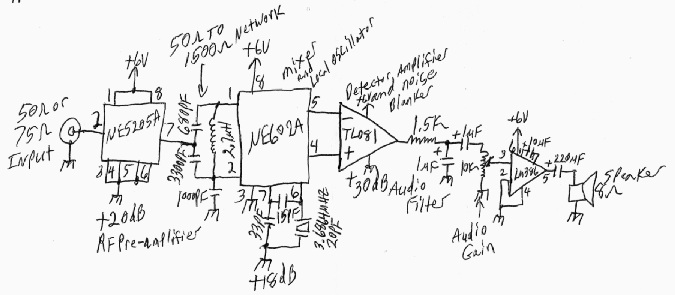 50Ω TO
1500Ω Network
+6V
mixer
and
Local oscillator
+6V
Detector, Amplifier
and noise
Blanker
50Ω or
75Ω
Input
2
1
8
NE5205A
7
3
4
5
6
+20dB
RF Pre-amplifier
680pF
3300pF
1000pF
1
8
2
NE602A
5
4
3
7
6
33pF
15pF
3.6864MHz
20pF
+18dB
-
TL081
+
+30dB
1.5K
+1μF
+
1μF
Audio
Filter
10K
Audio
Gain
+6V
+10μF
3
2
LM386
4
5
+220μF
Speaker
8Ω